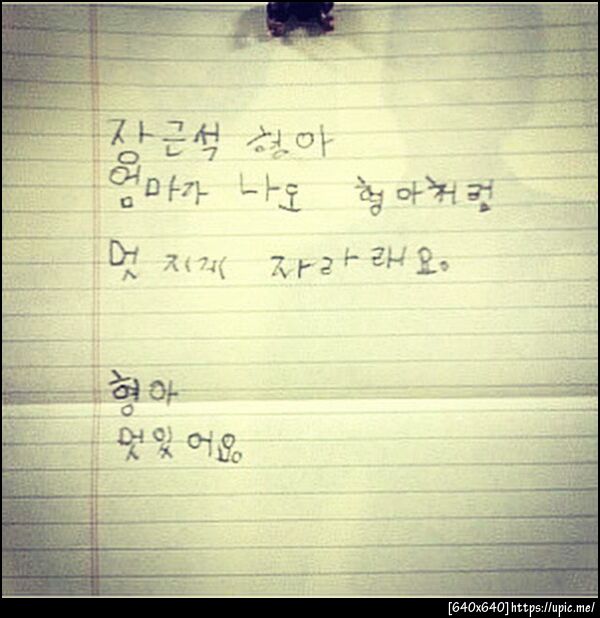 장근석 형아
엄마가 나오 형아처럼
멋지게 자라래요.
형아
멋있어요.
[640x640]https://upic.me/